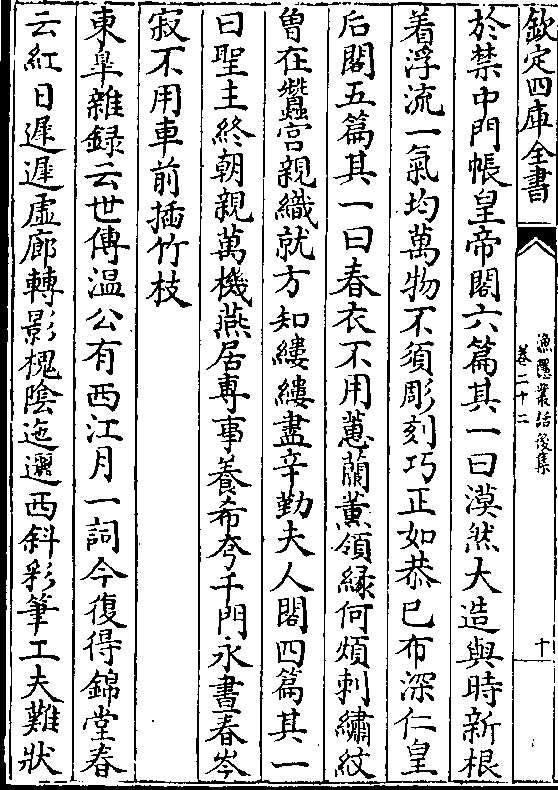 欽定四庫全書
漁隱叢話後集
卷二十二
十
於禁中門帳皇帝閣六篇其一曰漠然大造與時新根
着浮流一氣均萬物不須彫刻巧正如恭已布深仁皇
后閣五篇其一曰春衣不用蕙蘭薰領緣何煩刺繡紋
曽在蠶宫親織就方知縷縷盡辛勤夫人閣四篇其一
曰聖主終朝親萬機燕居専事養希夸千門永晝春岑
寂不用車前插竹枝
東臯雜録云世傳温公有西江月一詞今復得錦堂春
云紅日遲遲虛廊轉影槐陰迤邐西斜彩筆工夫難狀